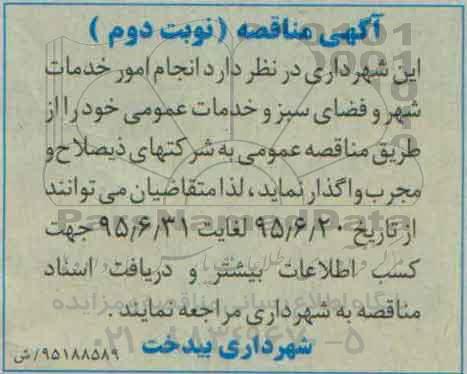 آگهی مناقصه (نوبت دوم)
این شهرداری در نظر دارد انجام امور خدمات
شهر و فضای سبز و خدمات عمومی خود را از
طریق مناقصه عمومی به شرکتهای ذیصلاح و
مجرب واگذار نماید، لذا متقاضیان می توانند
از تاریخ ۹۵/۶/۲۰ لغایت ۹۵/۶/۳۱ جهت
کسب اطلاعات بیشتر و دریافت اسناد
مناقصه به شهرداری مراجعه نمایند.
شهرداری بیدخت
۹۵۱۸۸۵۸۹/ش
ParsNamadData
پایگاه اطلاع رسانی مناقصه و مزایده